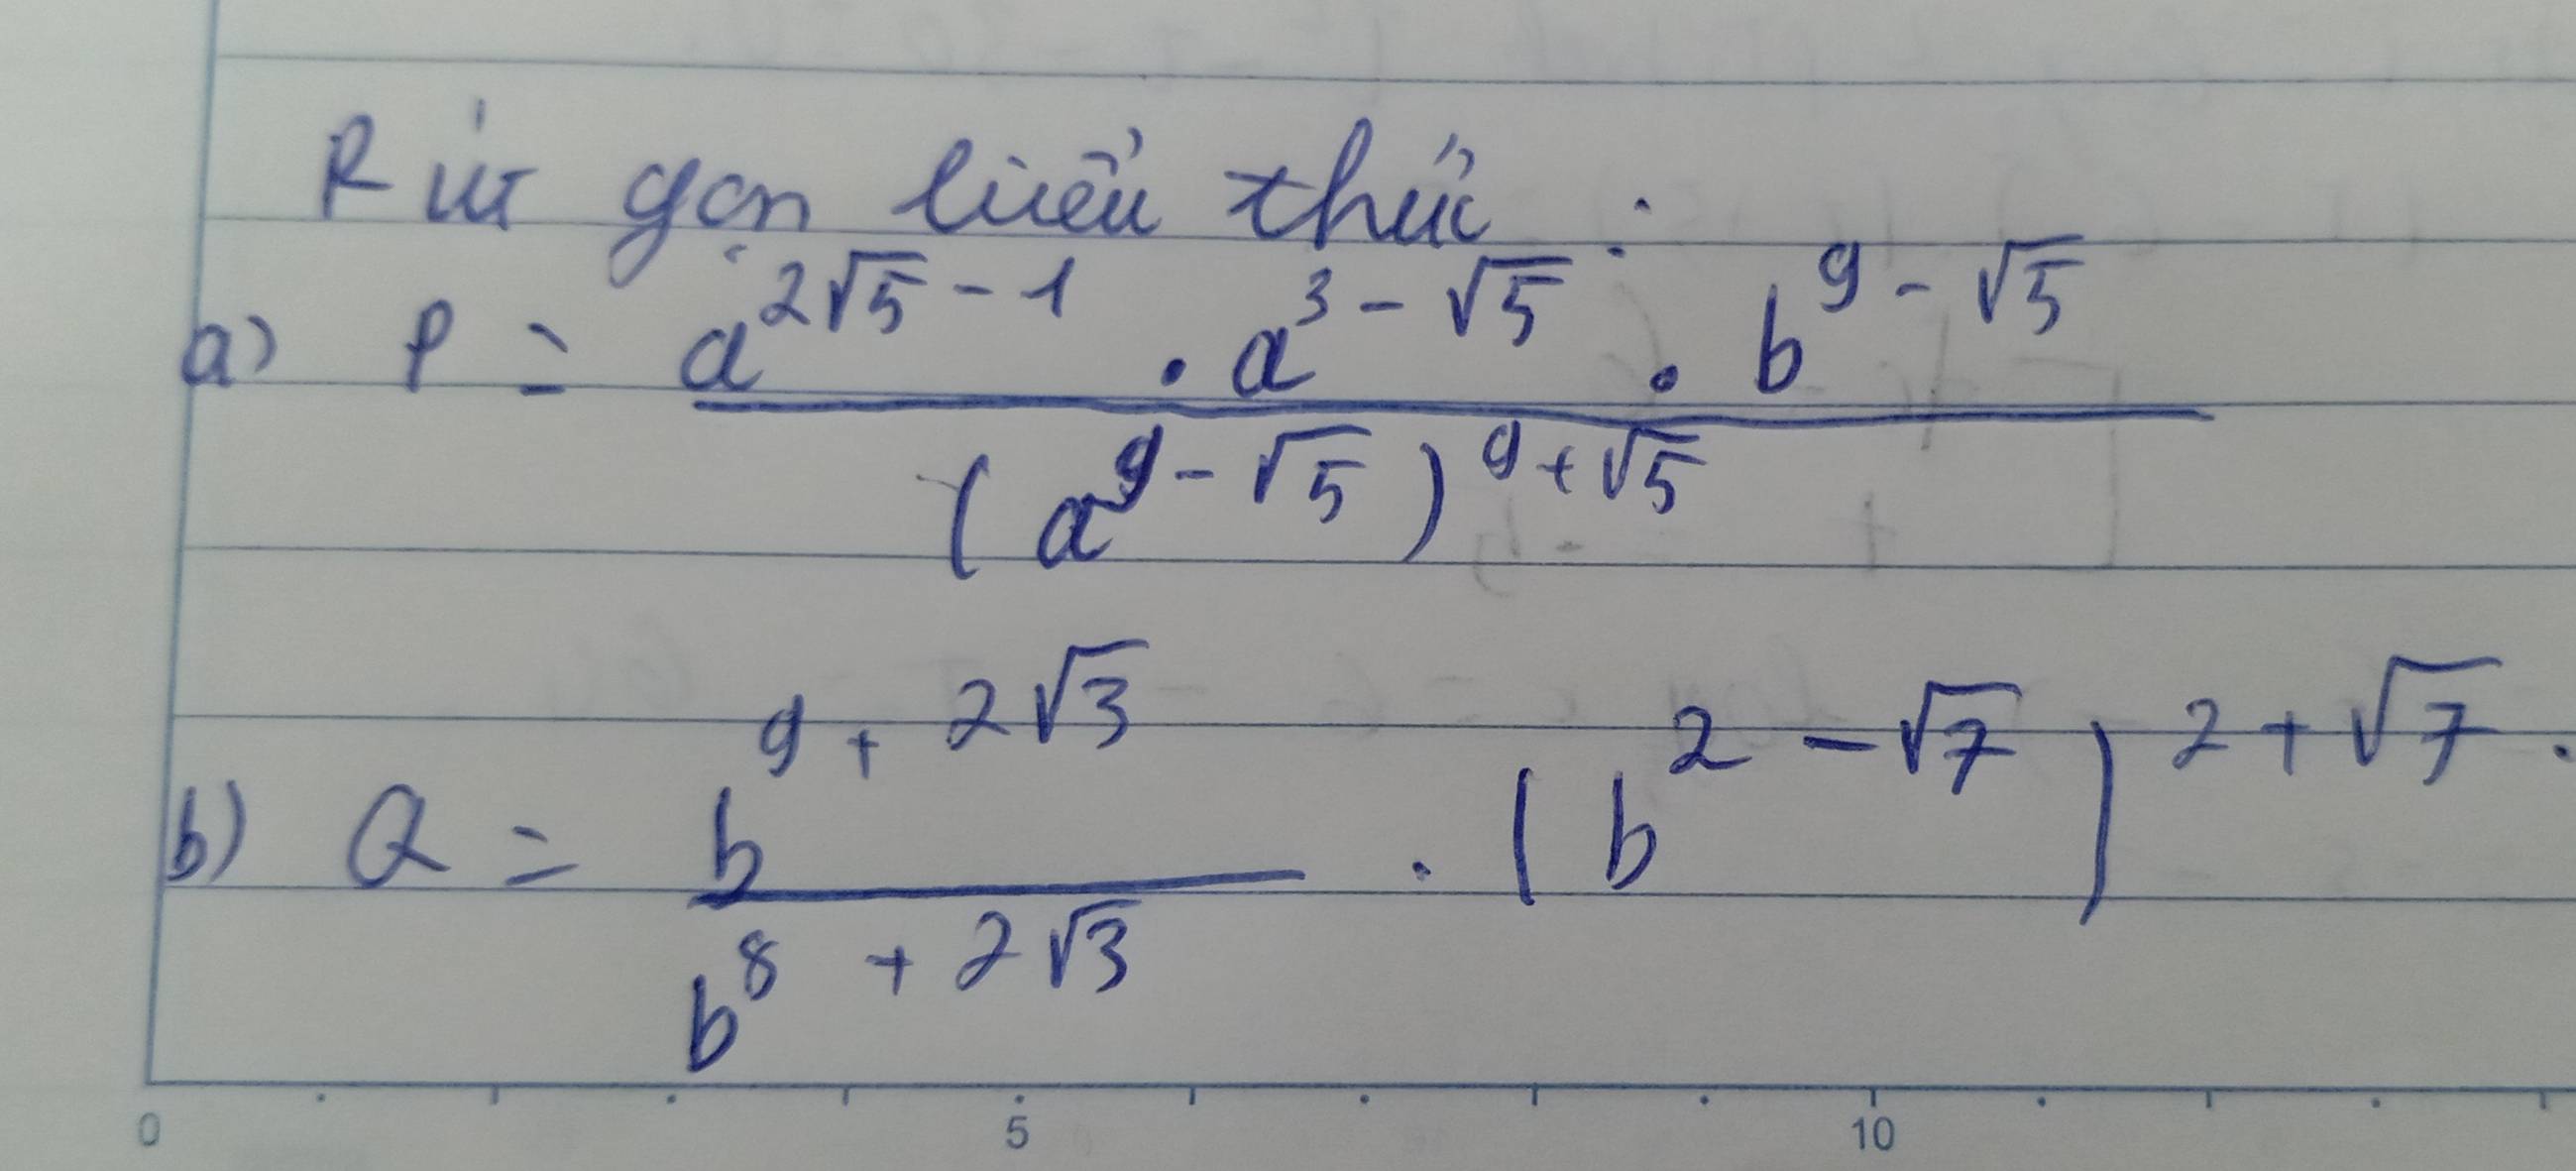 Rút gọn biểu thức :
a) P = \frac{a^{2\sqrt{5}-1} . a^{3-\sqrt{5}} . b^{9-\sqrt{5}}}{(a^{9-\sqrt{5}})^{9+\sqrt{5}}}
b) Q = \frac{b^{9+2\sqrt{3}}}{b^{8+2\sqrt{3}}} . (b^{2-\sqrt{7}})^{2+\sqrt{7}}.
0 5 10